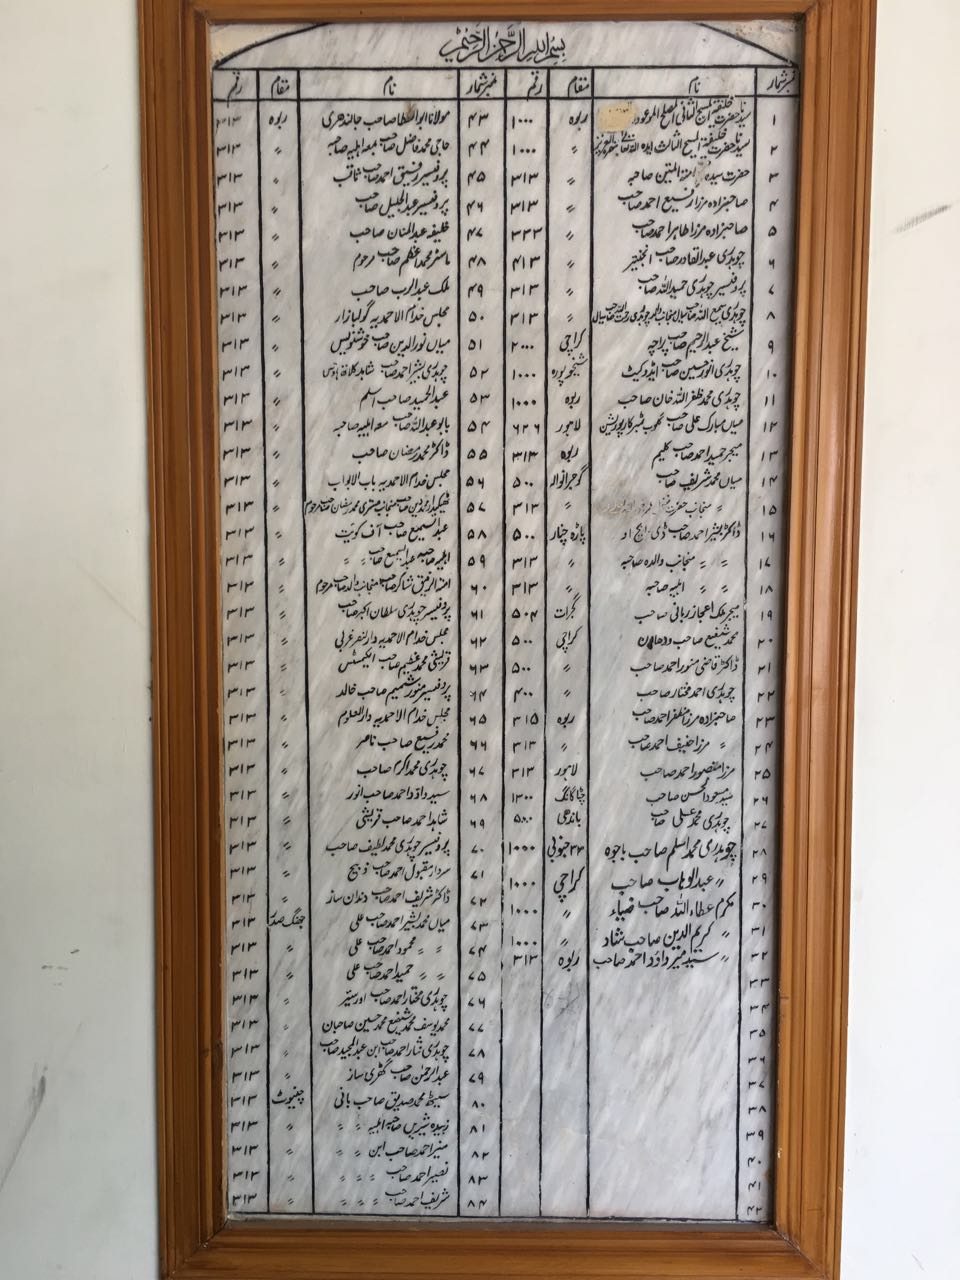 بسم الله الرحمن الرحیم
نمبر شمار نام مقام رقم
۱ سیدنا حضرت خلیفۃ المسیح الثانی المصلح الموعود ربوہ ۱۰۰۰
۲ سیدنا حضرت خلیفۃ المسیح الثالث ایدہ اللہ تعالیٰ بنصرہ العزیز " ۱۰۰۰
۳ حضرت سیدہ امۃ المتین صاحبہ " ۳۱۳
۴ صاحبزادہ مرزا رفیع احمد صاحب " ۳۱۳
۵ صاحبزادہ مرزا طاہر احمد صاحب " ۳۳۳
۶ چوہدری عبدالقادر صاحب انجنیئر " ۴۱۳
۷ پروفیسر چوہدری حمیداللہ صاحب " ۳۱۳
۸ چوہدری سمیع اللہ صاحب سیال منجانب والد چوہدری رحمت اللہ صاحب سیال " ۳۱۳
۹ شیخ عبدالرحیم صاحب پراچہ کراچی ۲۰۰۰
۱۰ چوہدری انور حسین صاحب ایڈووکیٹ شیخوپورہ ۱۰۰۰
۱۱ چوہدری محمد ظفر اللہ خان صاحب ربوہ ۱۰۰۰
۱۲ میاں مبارک علی صاحب لاہور ۶۲۶
۱۳ میجر حمید احمد صاحب کلیم ربوہ ۳۱۳
۱۴ میاں محمد شریف صاحب گوجرانوالہ ۵۰۰
۱۵ " منجانب حضرت " ۳۱۳
۱۶ ڈاکٹر بشیر احمد صاحب ڈی ایچ او پاڑہ چنار ۵۰۰
۱۷ " " منجانب والدہ صاحبہ " ۳۱۳
۱۸ " " اہلیہ صاحبہ " ۳۱۳
۱۹ میجر ملک اعجاز ربانی صاحب گجرات ۵۰۴
۲۰ محمد شفیع صاحب کراچی ۵۰۰
۲۱ ڈاکٹر قاضی منور احمد صاحب " ۵۰۰
۲۲ چوہدری احمد مختار صاحب " ۴۰۰
۲۳ صاحبزادہ مرزا مظفر احمد صاحب ربوہ ۳۱۵
۲۴ " مرزا حنیف احمد صاحب " ۳۱۳
۲۵ مرزا منصور احمد صاحب لاہور ۳۱۳
۲۶ سید مسعود الحسن صاحب چٹاگانگ ۱۳۰۰
۲۷ چوہدری محمد علی صاحب باندھی ۵۰۰
۲۸ چوہدری محمد اسلم صاحب باجوہ ۳۳ جنوبی ۱۰۰۰
۲۹ " عبدالوہاب صاحب کراچی ۱۰۰۰
۳۰ مکرم عطاء اللہ صاحب ضیاء " ۱۰۰۰
۳۱ " کریم الدین صاحب شاد " ۱۰۰۰
۳۲ " سید میر داؤد احمد صاحب ربوہ ۳۱۳
۳۳
۳۴
۳۵
۳۶
۳۷
۳۸
۳۹
۴۰
۴۱
۴۲
نمبر شمار نام مقام رقم
۴۳ مولانا ابوالعطا صاحب جالندھری ربوہ ۳۱۳
۴۴ حاجی محمد فاضل صاحب بمعہ اہلیہ صاحبہ " ۳۱۳
۴۵ پروفیسر رفیق احمد صاحب ثاقب " ۳۱۳
۴۶ پروفیسر عبدالجلیل صاحب " ۳۱۳
۴۷ خلیفہ عبدالمنان صاحب " ۳۱۳
۴۸ ماسٹر محمد اعظم صاحب مرحوم " ۳۱۳
۴۹ ملک عبدالرب صاحب " ۳۱۳
۵۰ مجلس خدام الاحمدیہ گولبازار " ۳۱۳
۵۱ میاں نورالدین صاحب خوشنویس " ۳۱۳
۵۲ چوہدری بشیر احمد صاحب شاہد کلاتھ ہاؤس " ۳۱۳
۵۳ عبدالحمید صاحب اسلم " ۳۱۳
۵۴ بابو عبداللہ صاحب معہ اہلیہ صاحبہ " ۳۱۳
۵۵ ڈاکٹر محمد رمضان صاحب " ۳۱۳
۵۶ مجلس خدام الاحمدیہ باب الابواب " ۳۱۳
۵۷ ٹھیکیدار منجانب مستری محمد رمضان صاحب مرحوم " ۳۱۳
۵۸ عبدالسمیع صاحب آف کویت " ۳۱۳
۵۹ اہلیہ صاحبہ عبدالسمیع صاحب " " " ۳۱۳
۶۰ امۃ الرفیق شاکر صاحبہ منجانب والد صاحب مرحوم " ۳۱۳
۶۱ پروفیسر چوہدری سلطان اکبر صاحب " ۳۱۳
۶۲ مجلس خدام الاحمدیہ دار النصر غربی " ۳۱۳
۶۳ قریشی محمد عظیم صاحب اکیمسٹس " ۳۱۳
۶۴ پروفیسر منور شمیم صاحب خالد " ۳۱۳
۶۵ مجلس خدام الاحمدیہ دارالعلوم " ۳۱۳
۶۶ محمد رفیع صاحب ناصر " ۳۱۳
۶۷ چوہدری محمد اکرم صاحب " ۳۱۳
۶۸ سید داؤد احمد صاحب انور " ۳۱۳
۶۹ شاہد احمد صاحب قریشی " ۳۱۳
۷۰ پروفیسر چوہدری محمد لطیف صاحب " ۳۱۳
۷۱ سردار مقبول احمد صاحب ذبیح " ۳۱۳
۷۲ ڈاکٹر شریف احمد صاحب دندان ساز " ۳۱۳
۷۳ میاں محمد بشیر احمد صاحب علی جھنگ صدر ۳۱۳
۷۴ " " محمود احمد صاحب علی " ۳۱۳
۷۵ " " حمید احمد صاحب علی " ۳۱۳
۷۶ چوہدری مختار احمد صاحب اورسیئر " ۳۱۳
۷۷ محمد یوسف محمد شفیع محمد حسین صاحبان " ۳۱۳
۷۸ چوہدری نثار احمد صاحب ابن عبدالمجید صاحب " ۳۱۳
۷۹ عبدالرحمٰن صاحب گھڑی ساز " ۳۱۳
۸۰ سیٹھ محمد صدیق صاحب بانی چنیوٹ ۳۱۳
۸۱ زبیدہ شیریں صاحبہ اہلیہ " " " ۳۱۳
۸۲ منیر احمد صاحب ابن " " " ۳۱۳
۸۳ نصیر احمد صاحب " " " " ۳۱۳
۸۴ شریف احمد صاحب " " " " ۳۱۳